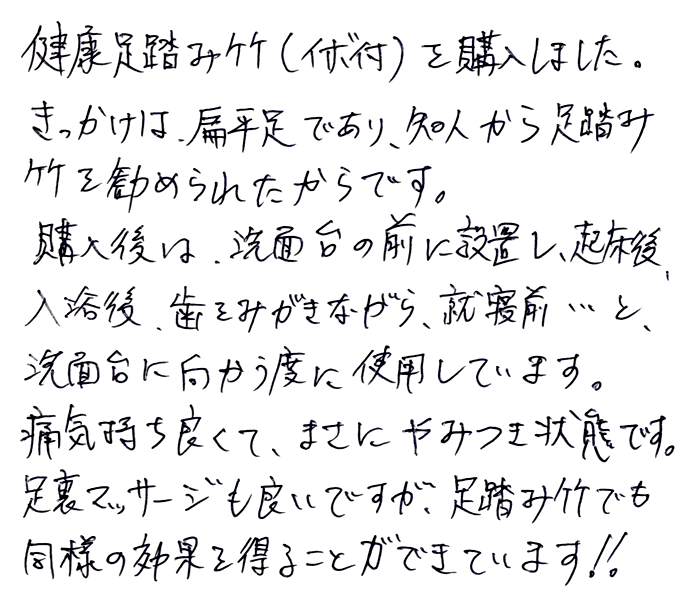 健康足踏み竹(イボ付)を購入しました。
きっかけは、扁平足であり、知人から足踏み
竹を勧められたからです。
購入後は、洗面台の前に設置し、起床後、
入浴後、歯をみがきながら、就寝前…と、
洗面台に向かう度に使用しています。
痛気持ち良くて、まさにやみつき状態です。
足裏マッサージも良いですが、足踏み竹でも
同様の効果を得ることができています!!